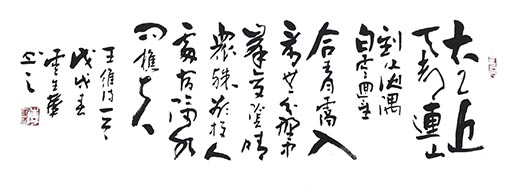 太乙近
天都連山
到海隅
白雲迴望
合青靄入
看無分野中
峯變陰晴
眾壑殊欲投人
處宿隔水
問樵夫
王維詩一首
戊戌春
书之